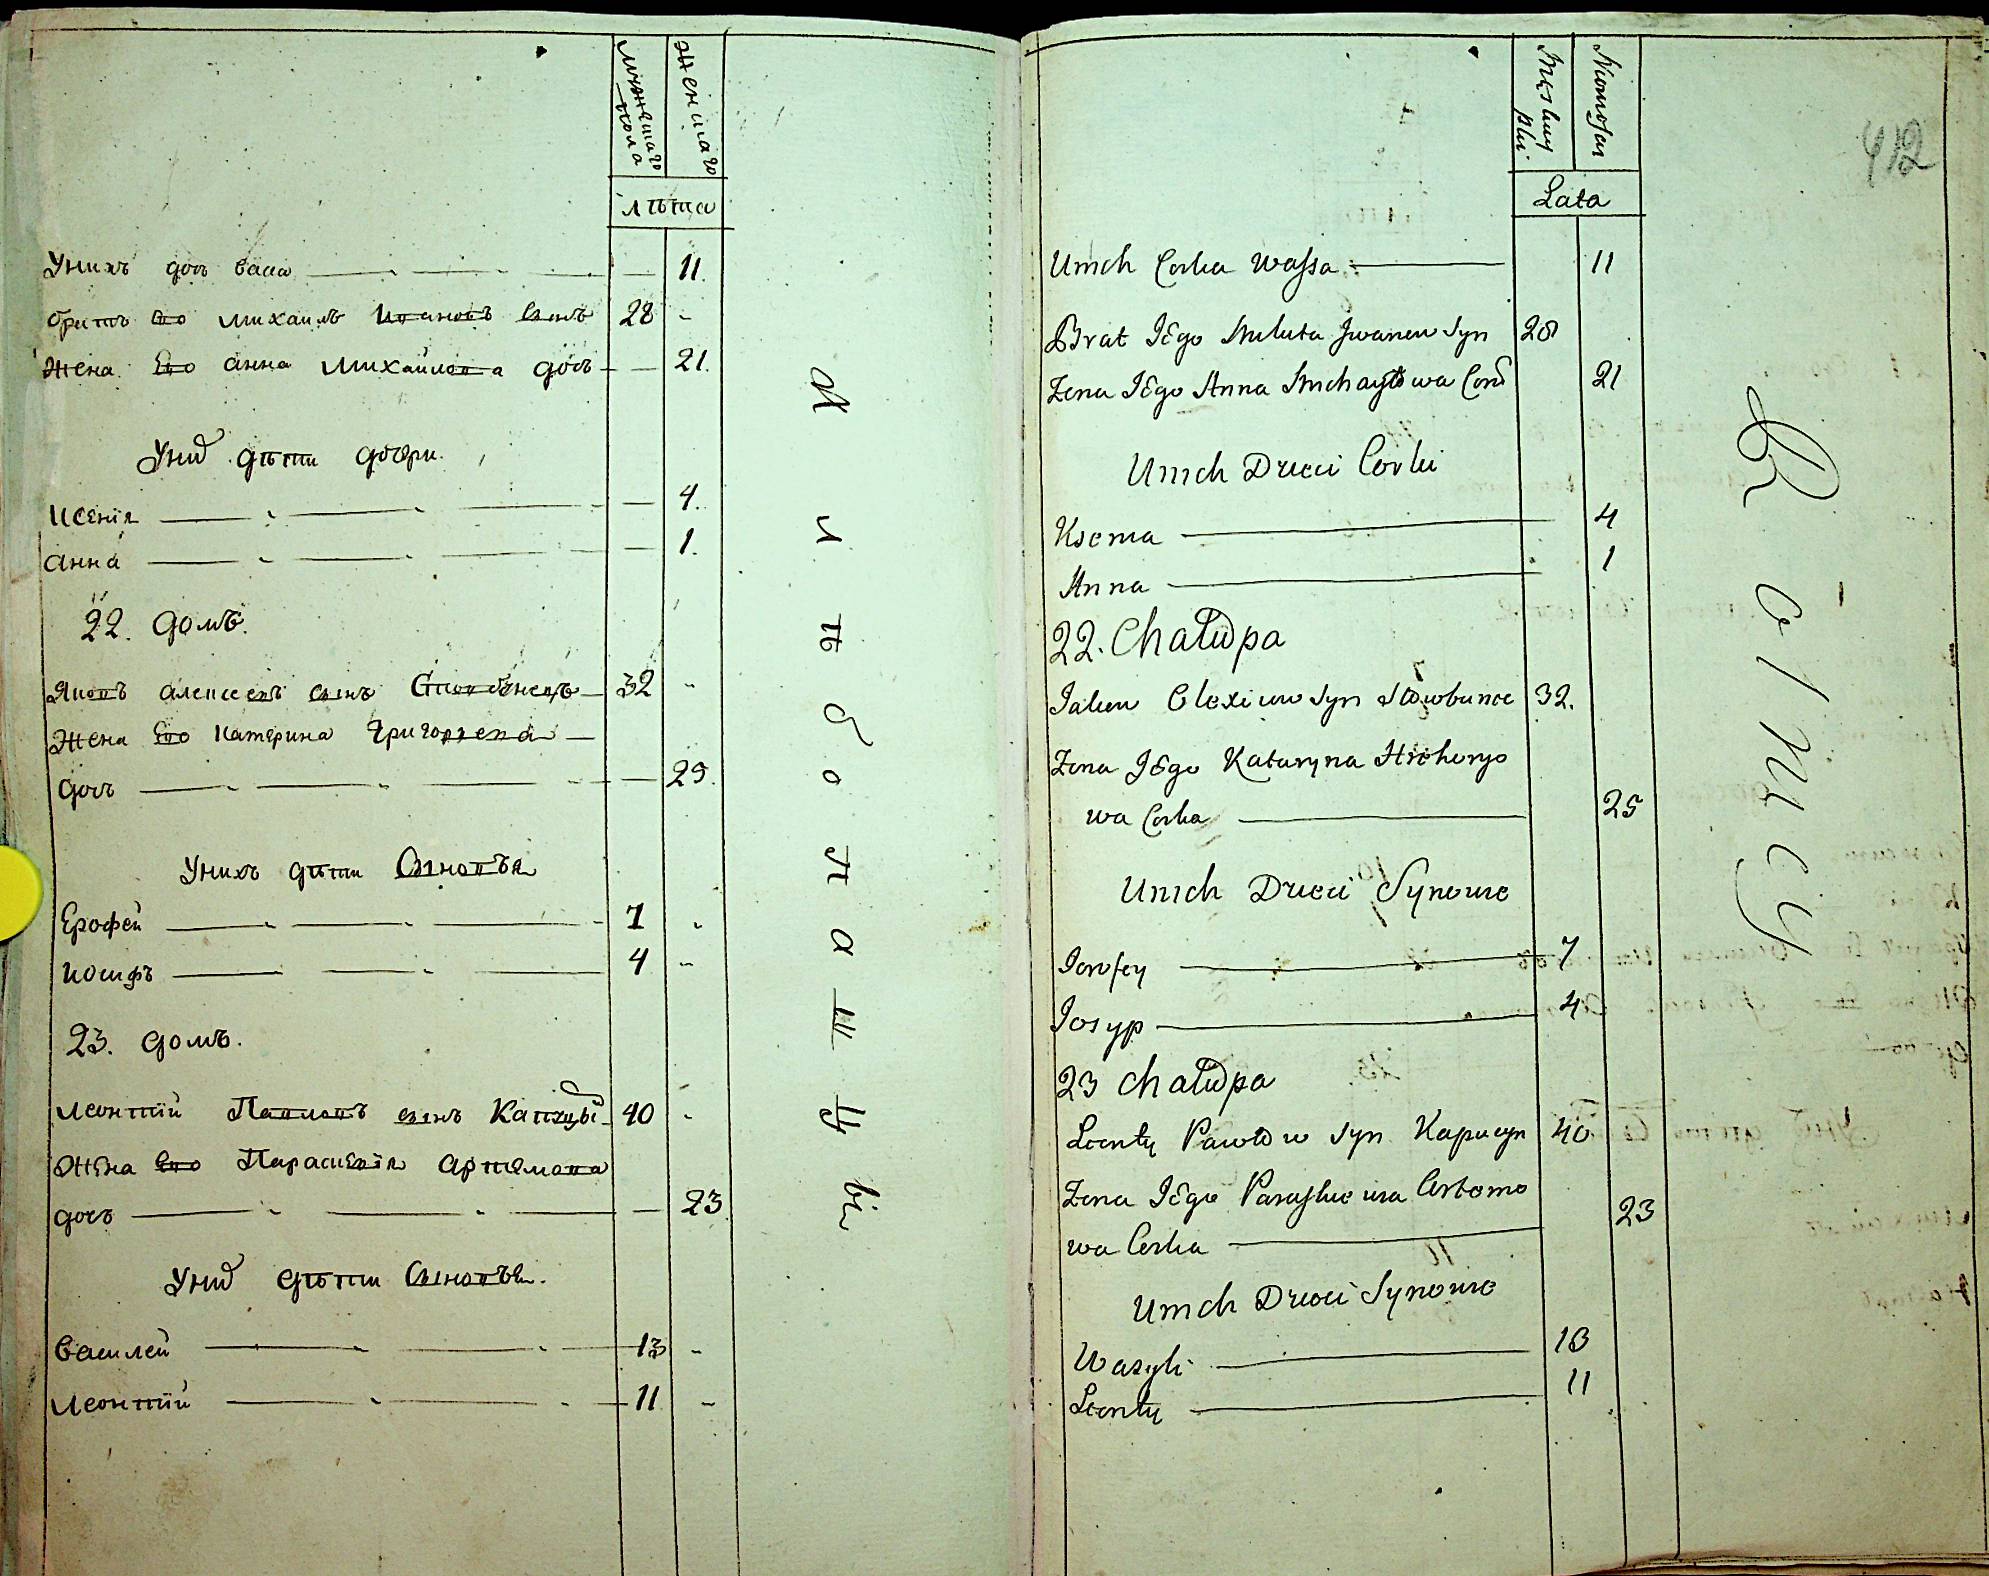 мужеска пола
женска
лѣта
Унихъ дочъ васа 11.
братъ его михаилъ Ивановъ сынъ 28 -
Жена Его анна михайлова дочъ 21.
Унихъ дѣти дочери.
Ксенія 4.
анна 1.
22. домъ.
Яковъ алексеевъ сынъ Стовбенецъ 32 -
Жена Его Катерина Григорьева
дочъ 25.
Унихъ дѣти Сыновья
Ерофей 7 -
Иосифъ 4 -
23. домъ.
Леонтій Павловъ сынъ Капуцы 40 -
Жена Его Параскевія артемова
дочъ 23
Унихъ дѣти Сыновья.
Василей 13 -
Леонтій 11 -
хлѣбопашцы
Męskuy płci
Lata
412
Unich Corka Wassa 11
Brat Jego Miluta Jwanow Syn 28
Zona Jego Anna Michayłowa Cor 21
Unich Dzieci Corki
Ksenia 4
Anna 1
22. Chałupa
Jakow Olexiiow Syn Stowbunec 32.
Zona Jego Kataryna Hrehoryo
wa Corka 25
Unich Dzieci Synowie
Jorofey 7
Josyp 4
23 Chałupa
Leonty Pawłow Syn Kapucyn 40
Zona Jego Paraskiewia Artemo
wa Corka 23
Unich Dzieci Synowie
Wasyli 13
Leonty 11
Rolnicy